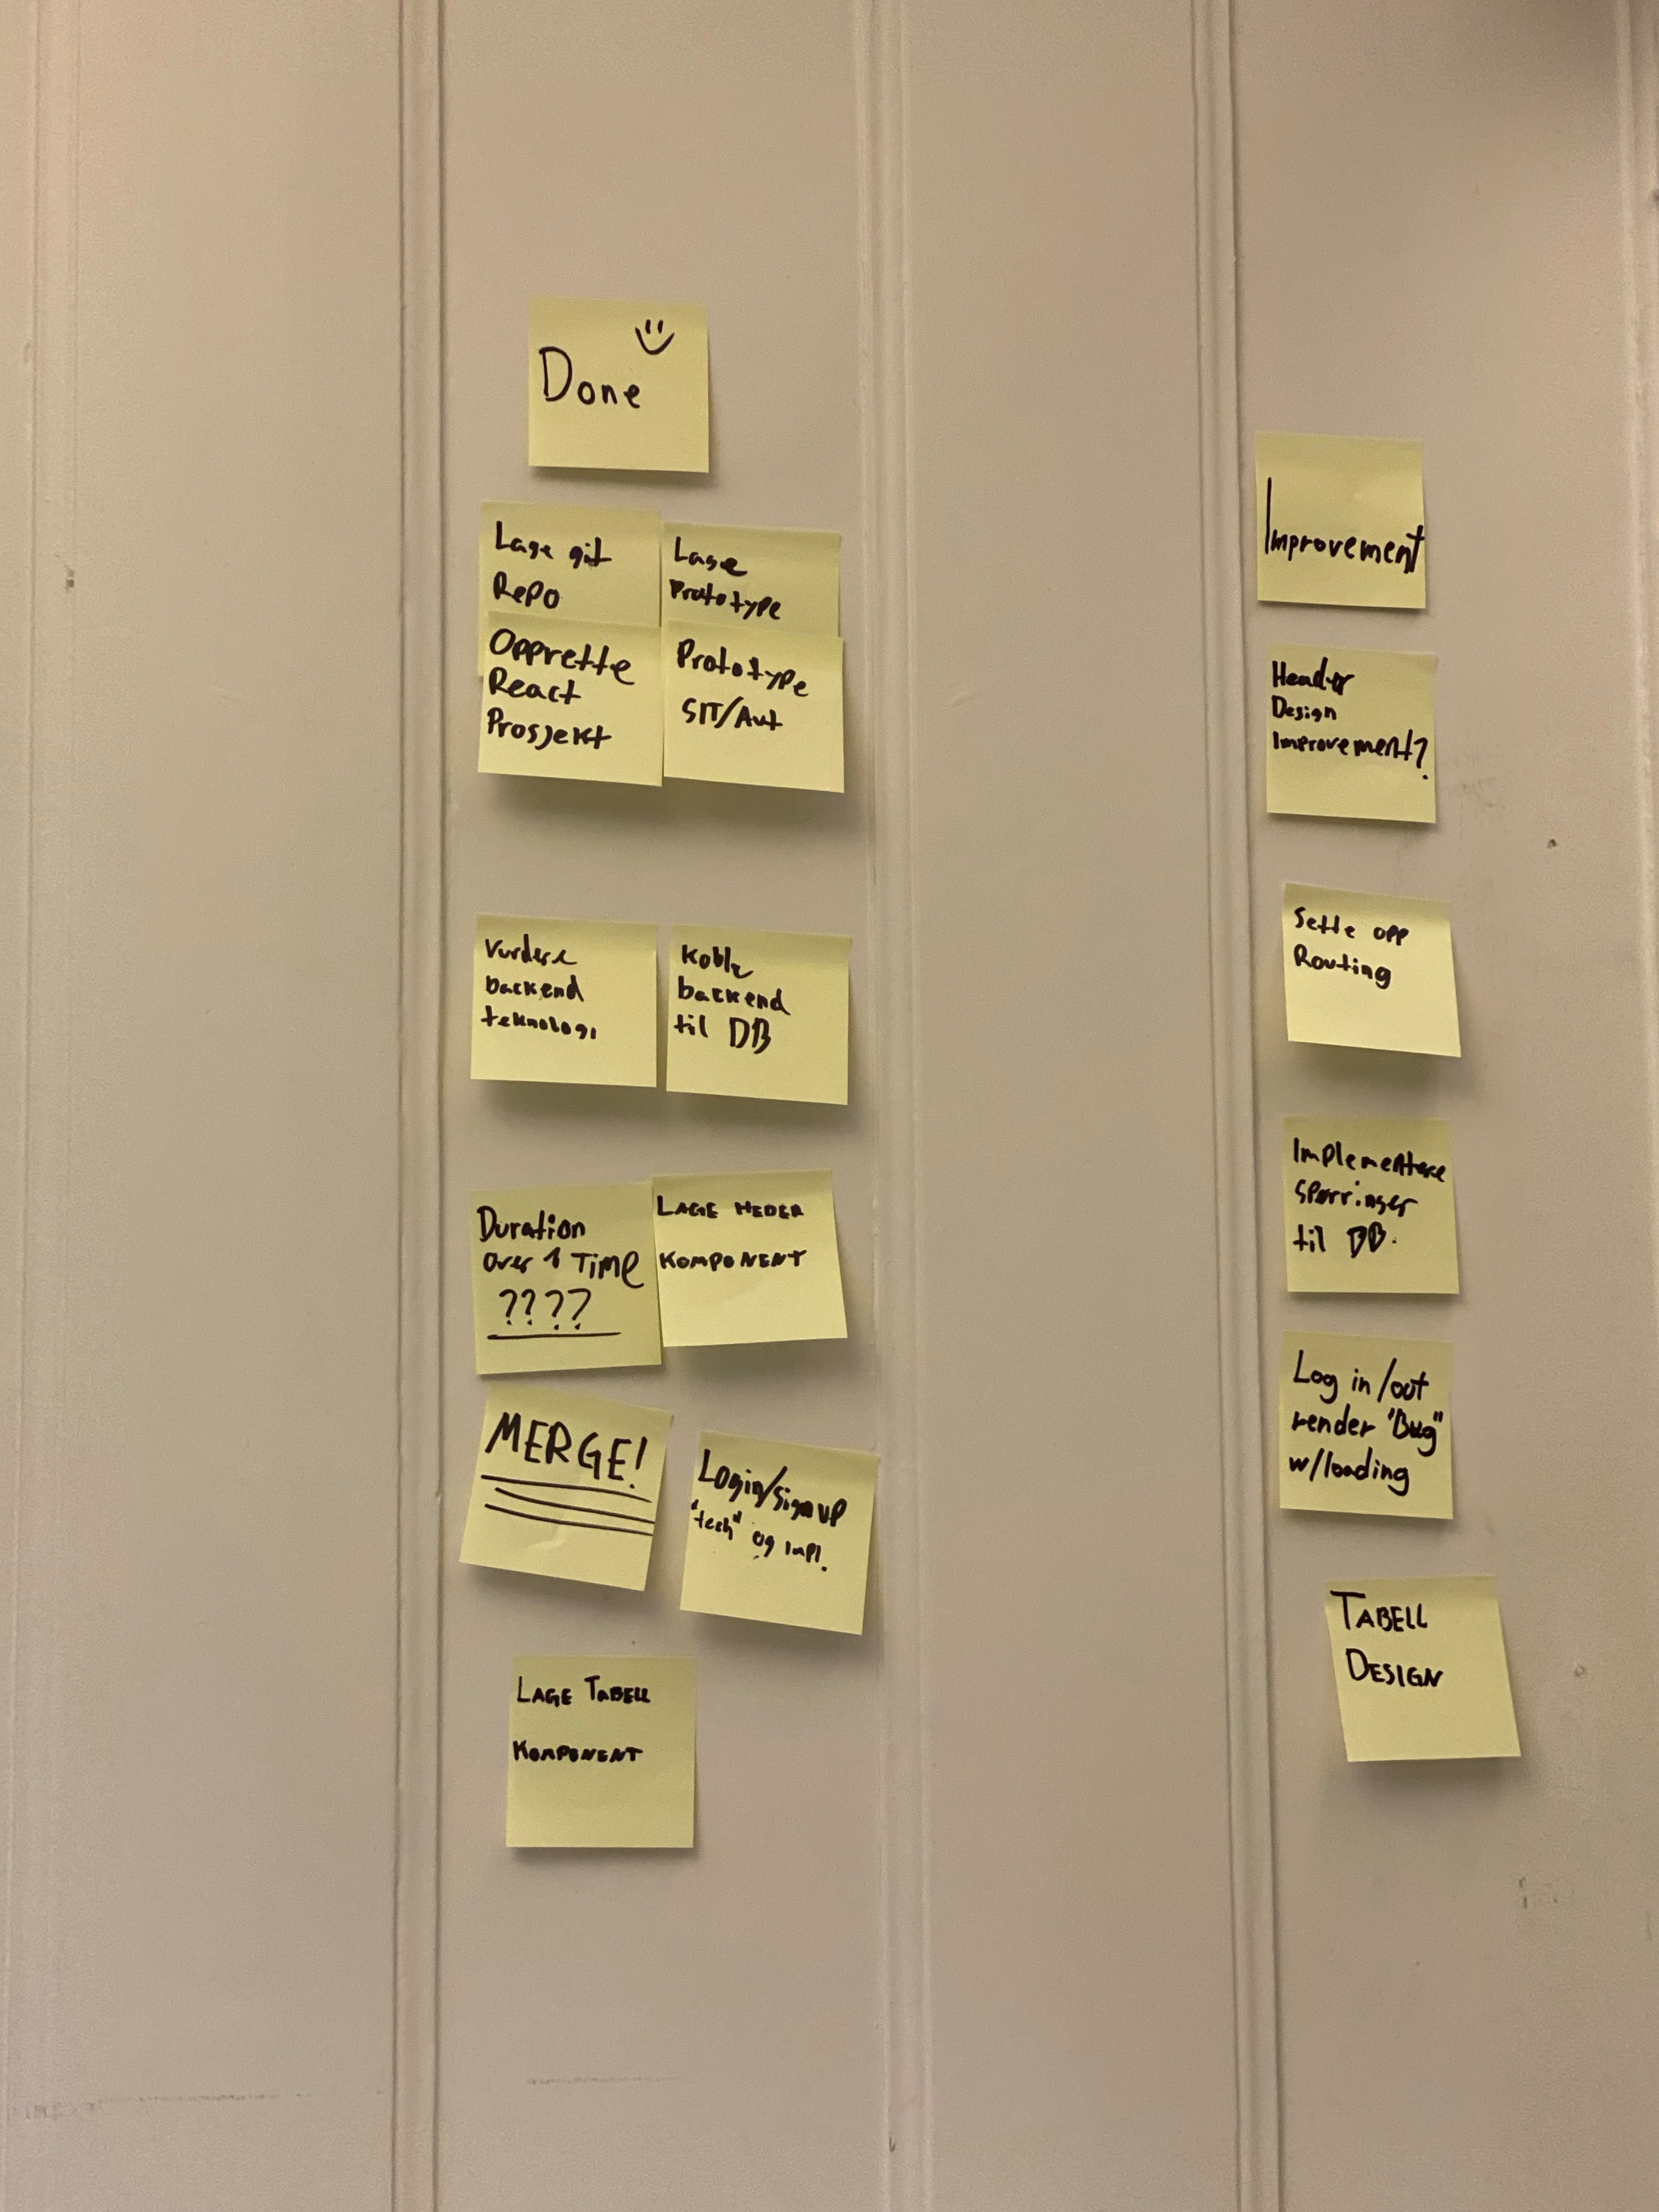 Done
Lage git
Repo
Lage
Prototype
Opprette
React
Prosjekt
Prototype
SIT/Aut
Vurdere
backend
teknologi
Koble
backend
til DB
Duration
over 1 Time
????
LAGE HEDER
KOMPONENT
MERGE!
Login/Signup
"tech" og impl.
LAGE TABELL
KOMPONENT
Improvement
Header
Design
Improvement?
Sette opp
Routing
Implementere
Spørringer
til DB.
Log in/out
render "Bug"
w/loading
TABELL
DESIGN